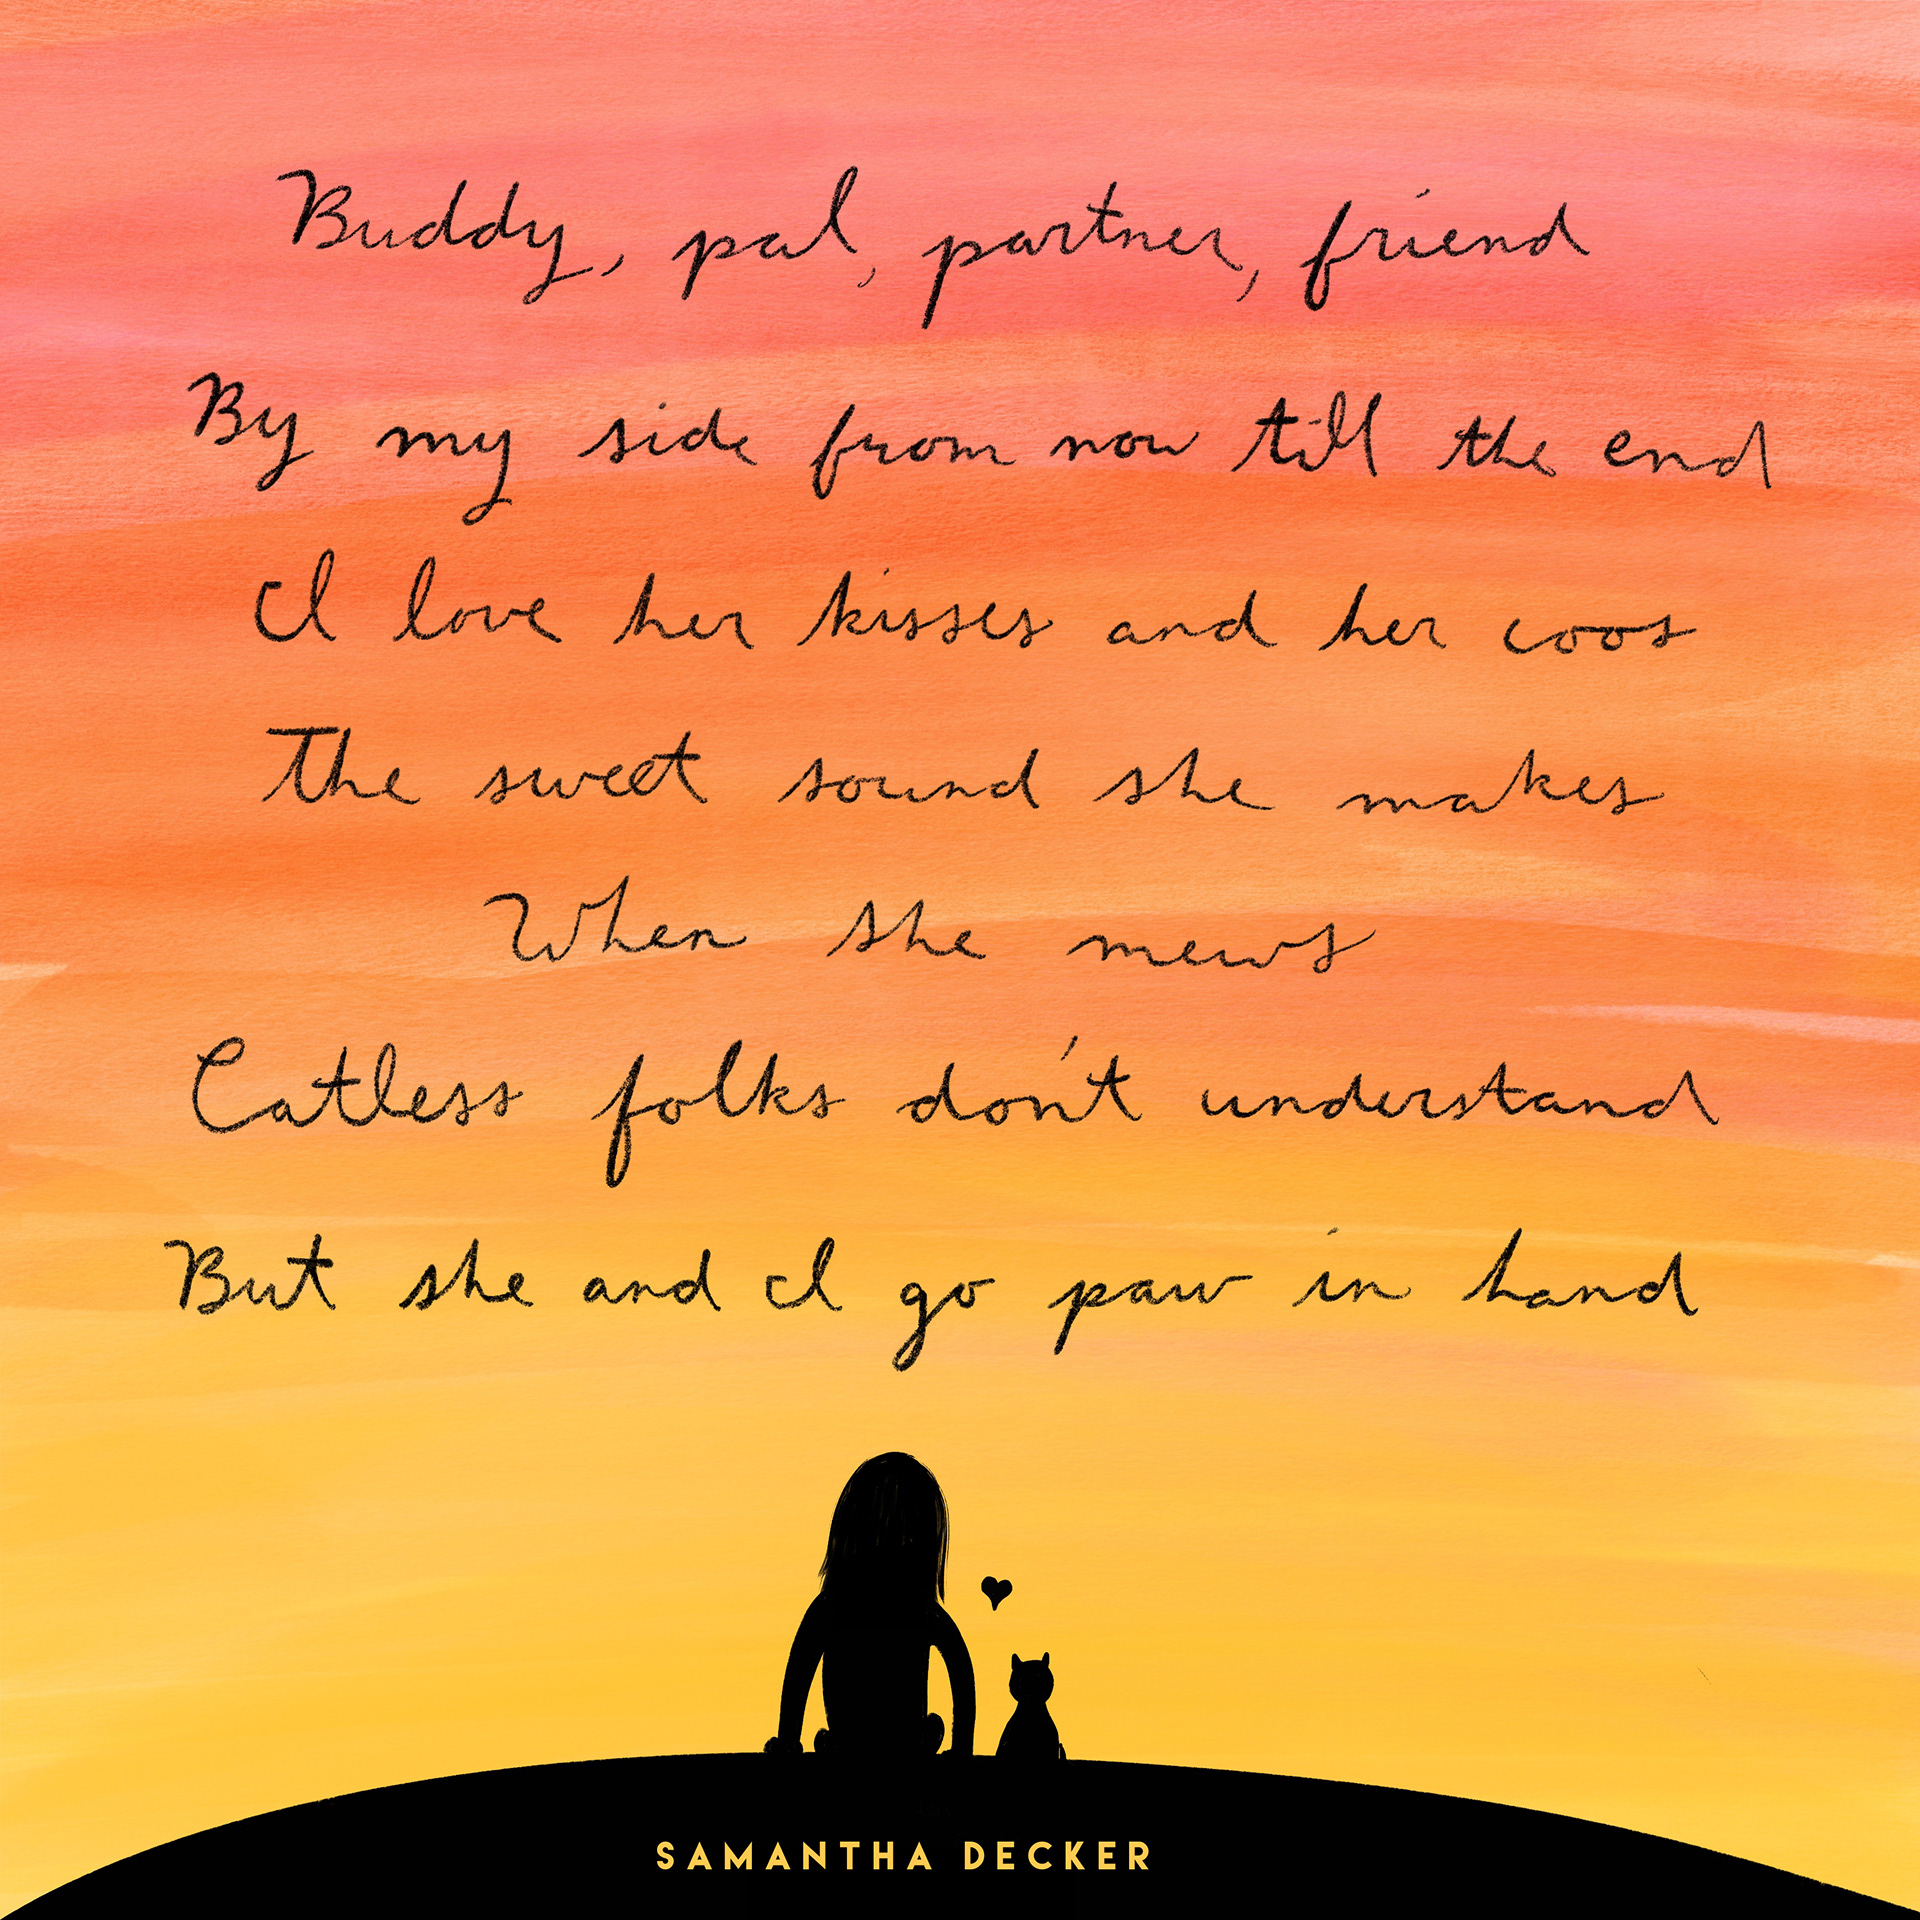 Buddy, pal, partner, friend
By my side from now till the end
I love her kisses and her coos
The sweet sound she makes
When she mews
Catless folks don't understand
But she and I go paw in hand
SAMANTHA DECKER